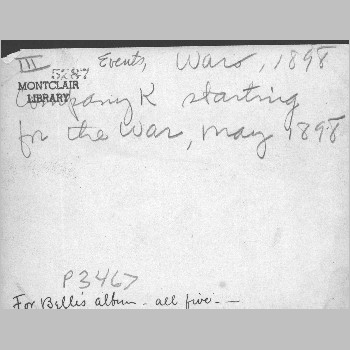 III Events, Wars, 1898
5787
MONTCLAIR
LIBRARY
Company K starting
for the war, may 1898
P3467
For Bellis album - all five - -